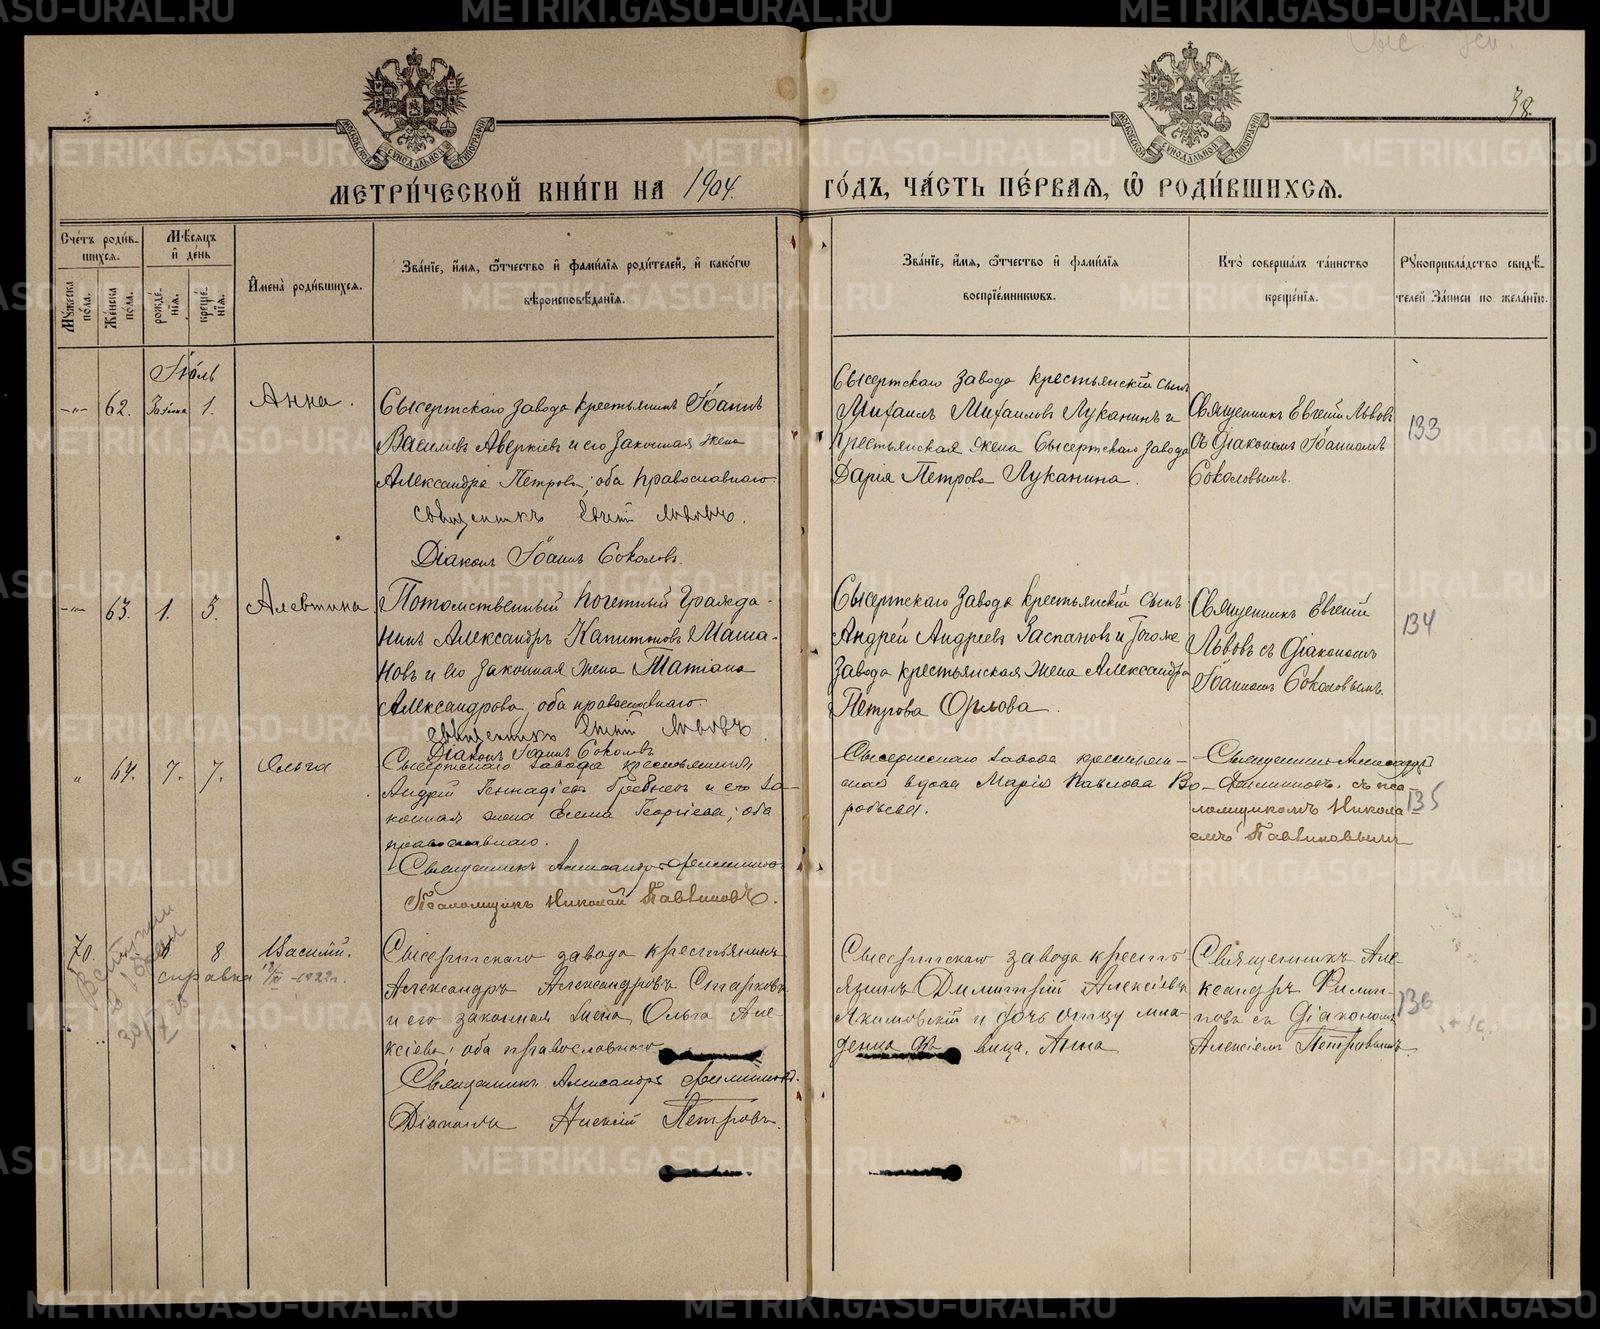 38.
МОСКОВСКОЙ СѴНОДАЛЬНОЙ ТИПОГРАФІИ
МОСКОВСКОЙ СѴНОДАЛЬНОЙ ТИПОГРАФІИ
МЕТРИ́ЧЕСКОЙ КНИ́ГИ НА 1904. ГО́ДЪ, ЧА́СТЬ ПЕ́РВАЯ, Ѽ РОДИ́ВШИХСЯ.
Сче́тъ роди́вшихся.
Мꙋ́жеска по́ла.
Же́нска по́ла.
Мѣ́сяцъ и҆ де́нь
рожде́нїя.
креще́нїя.
И҆мена̀ роди́вшихся.
Зва́нїе, и҆́мя, ѻ҆́тчество и҆ фами́лїя роди́телей, и҆ како́гѡ вѣроисповѣ́данїя.
Зва́нїе, и҆́мя, ѻ҆́тчество и҆ фами́лїя воспрїе́мниковъ.
Кто̀ соверша́лъ та́инство креще́нїя.
Рꙋкоприкла́дство свидѣ́телей за́писи по жела́нїю.
Іюль
62.
1.
Анна.
Сысертскаго завода крестьянинъ Іоаннъ
Васильевъ Аверкіевъ и его законная жена
Александра Петрова; оба православнаго.
Священникъ Евгеній Львовъ.
Діаконъ Іоаннъ Соколовъ.
Сысертскаго завода крестьянскій сынъ
Михаилъ Михаиловъ Луканинъ и
крестьянская жена Сысертскаго завода
Дарія Петрова Луканина.
Священникъ Евгеній Львовъ
съ діакономъ Іоанномъ
Соколовымъ.
133
63. 1. 3.
Алевтина.
Потомственный Почетный Гражда-
нинъ Александръ Капитоновъ Маша-
новъ и его законная жена Татіана
Александрова, оба православнаго.
Священникъ Евгеній Львовъ.
Діаконъ Іоаннъ Соколовъ
Сысертскаго завода крестьянскій сынъ
Андрей Андреевъ Заспановъ и тогоже
завода крестьянская жена Александра
Петрова Орлова.
Священникъ Евгеній
Львовъ съ діакономъ
Іоанномъ Соколовымъ.
134
64. 7. 7.
Ольга
Сысертскаго завода крестьянинъ
Андрей Геннадіевъ и его за-
конная жена Елена Георгіева; оба
православнаго.
Священникъ Александръ Филипповъ
Псаломщикъ Николай Павиновъ.
Сысертскаго завода крестьян-
ская вдова Марія Павлова Во-
робьева.
Священникъ Александръ
Филипповъ, съ пса-
ломщикомъ Никола
емъ Павиновымъ
135
70. 8
Василій.
справка 1922г.
Сысертскаго завода крестьянинъ
Александръ Александровъ Старковъ
и его законная жена Ольга Але-
ксіева; оба православнаго
Священникъ Александръ Филипповъ.
Діаконъ Алексій Петровъ.
Сысертскаго завода кресть-
янинъ Димитрій Алексіевъ
Якимовскій и дочь отцу мла-
денца дѣвица, Анна
Священникъ Але-
ксандръ Филип-
повъ съ діакономъ
Алексіемъ Петровымъ.
136
METRIKI.GASO-URAL.RU